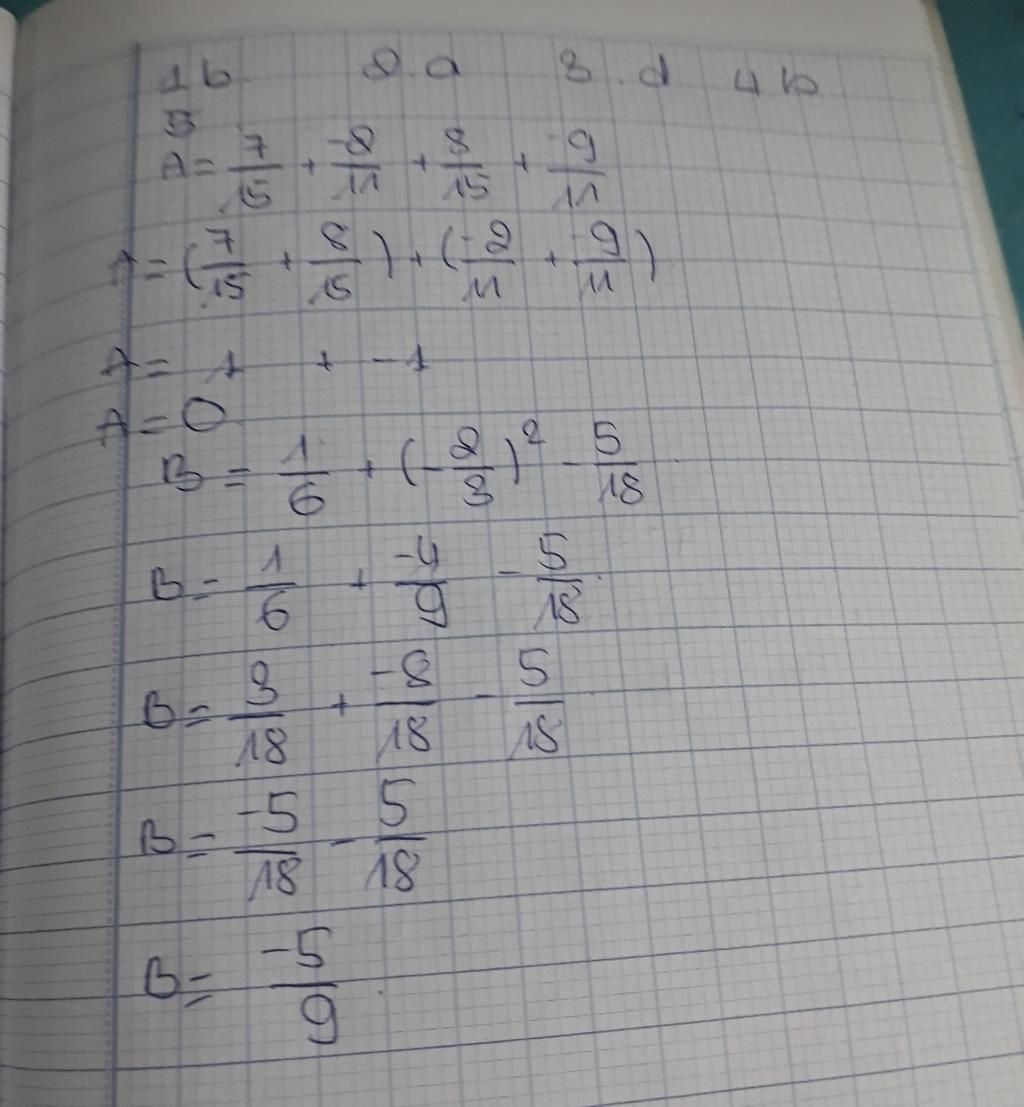 1 b 2. a 3. d 4 b
5
A = 7/15 + -2/11 + 8/15 + -9/11
A = (7/15 + 8/15) + (-2/11 + -9/11)
A = 1 + -1
A = 0
B = 1/6 + (-2/3)² - 5/18
B = 1/6 + -4/9 - 5/18
B = 3/18 + -8/18 - 5/18
B = -5/18 - 5/18
B = -5/9